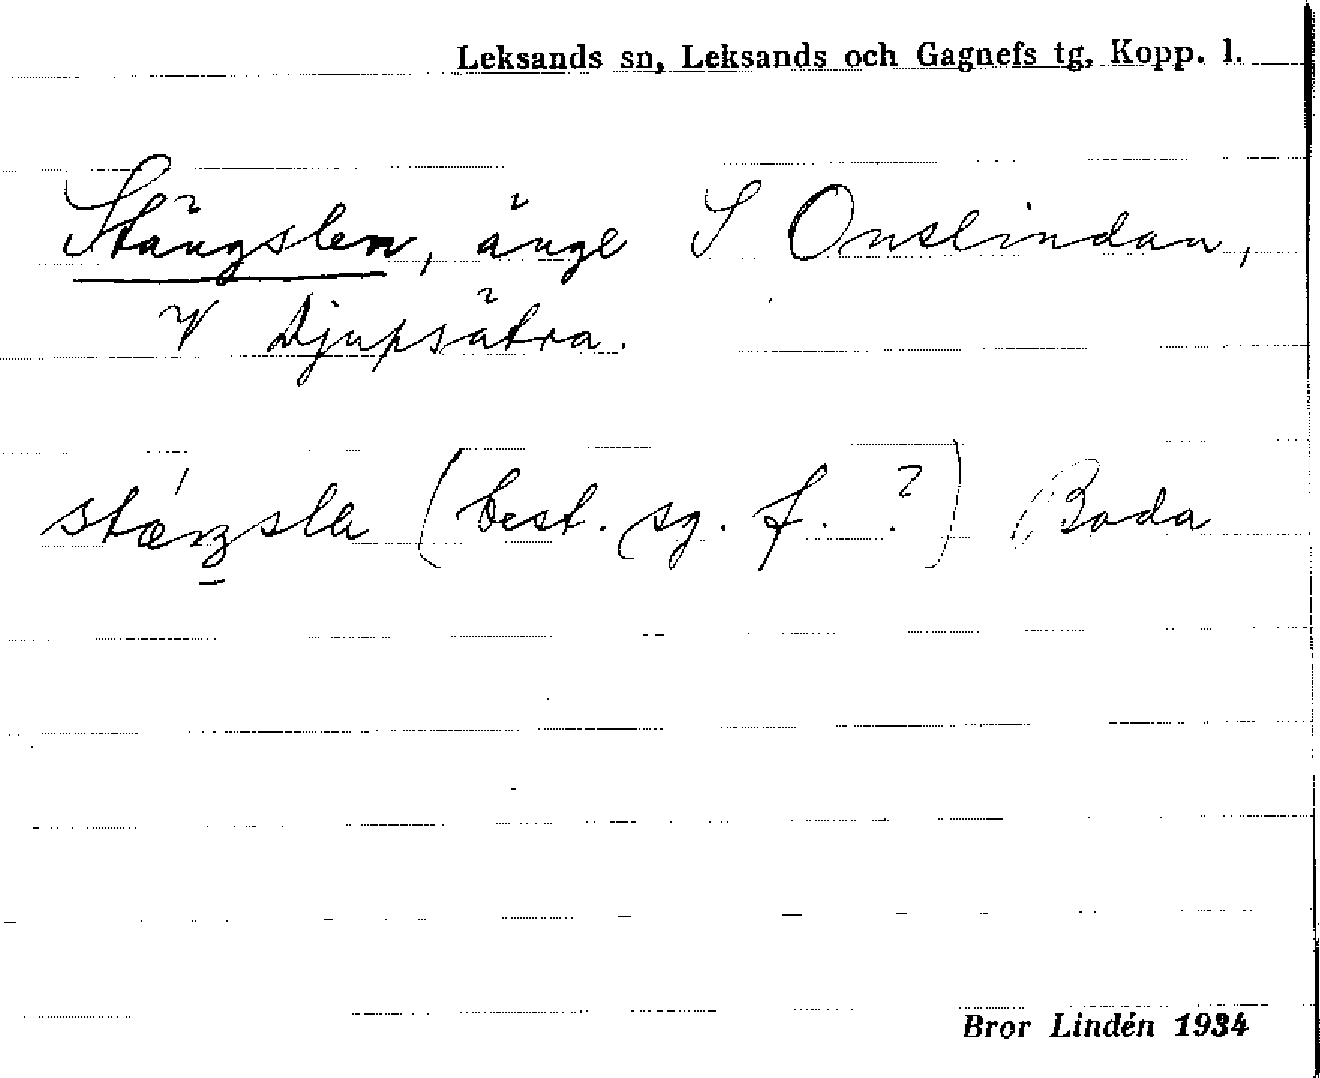 Leksands sn, Leksands och Gagnefs tg, Kopp. l.
Stängslen, änge S Onslindan,
V Djupsätra.
stæŋsla (best. sg. f. ?) Boda
Bror Lindén 1934